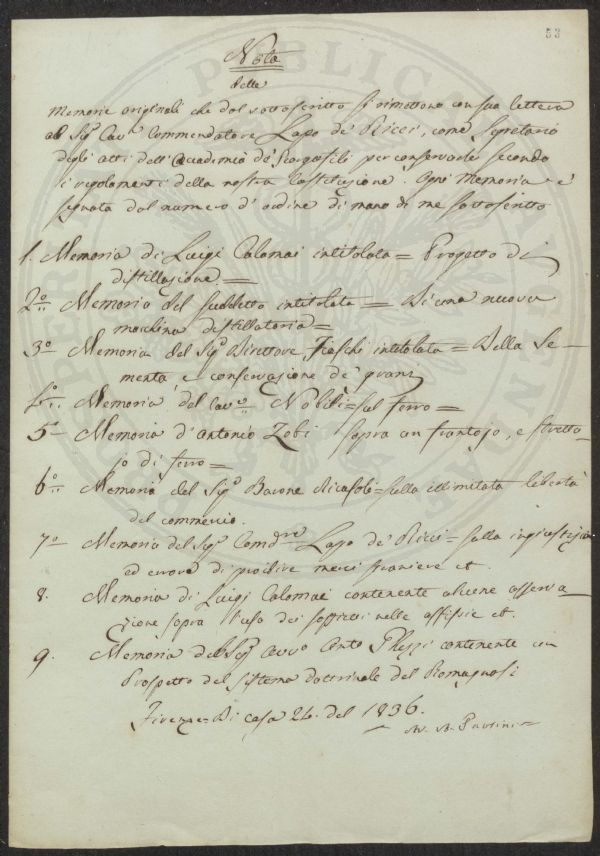 53
Nota
delle
Memorie originali che dal sottoscritto si rimettono con sua lettera
al Sigr Cavr Commendatore Lapo de' Ricci, come Segretario
degli atti dell'Accademia de' Georgofili per conservarle secondo
i regolamenti della nostra Costituzione. Ogni Memoria è
segnata dal numero d'ordine di mano di me sottoscritto
1. Memoria di Luigi Calamai intitolata = Progetto di
distillazione =
2o Memoria del suddetto intitolata = Di una nuova
macchina distillatoria =
3o Memoria del Sigr Direttore intitolata = Della Se-
menta e conservazione de' grani
4o Memoria del Cave Nobili = sul ferro =
5o Memoria d'Antonio Zobi sopra un frantojo, e stretto-
jo di ferro =
6o Memoria del Sigr Barone Ricasoli = sulla illimitata libertà
del commercio.
7o Memoria del Sigr Comdre Lapo de' Ricci = sulla ingiustizia
ed errore di proibire merci straniere et.
8. Memoria di Luigi Calamai contenente alcune osserva-
zione sopra l'uso dei nelle et.
9. Memoria del Sigr Avvo Anto contenente un
Prospetto del Sistema dottrinale del Romagnosi
Firenze Di casa 26. del 1836.